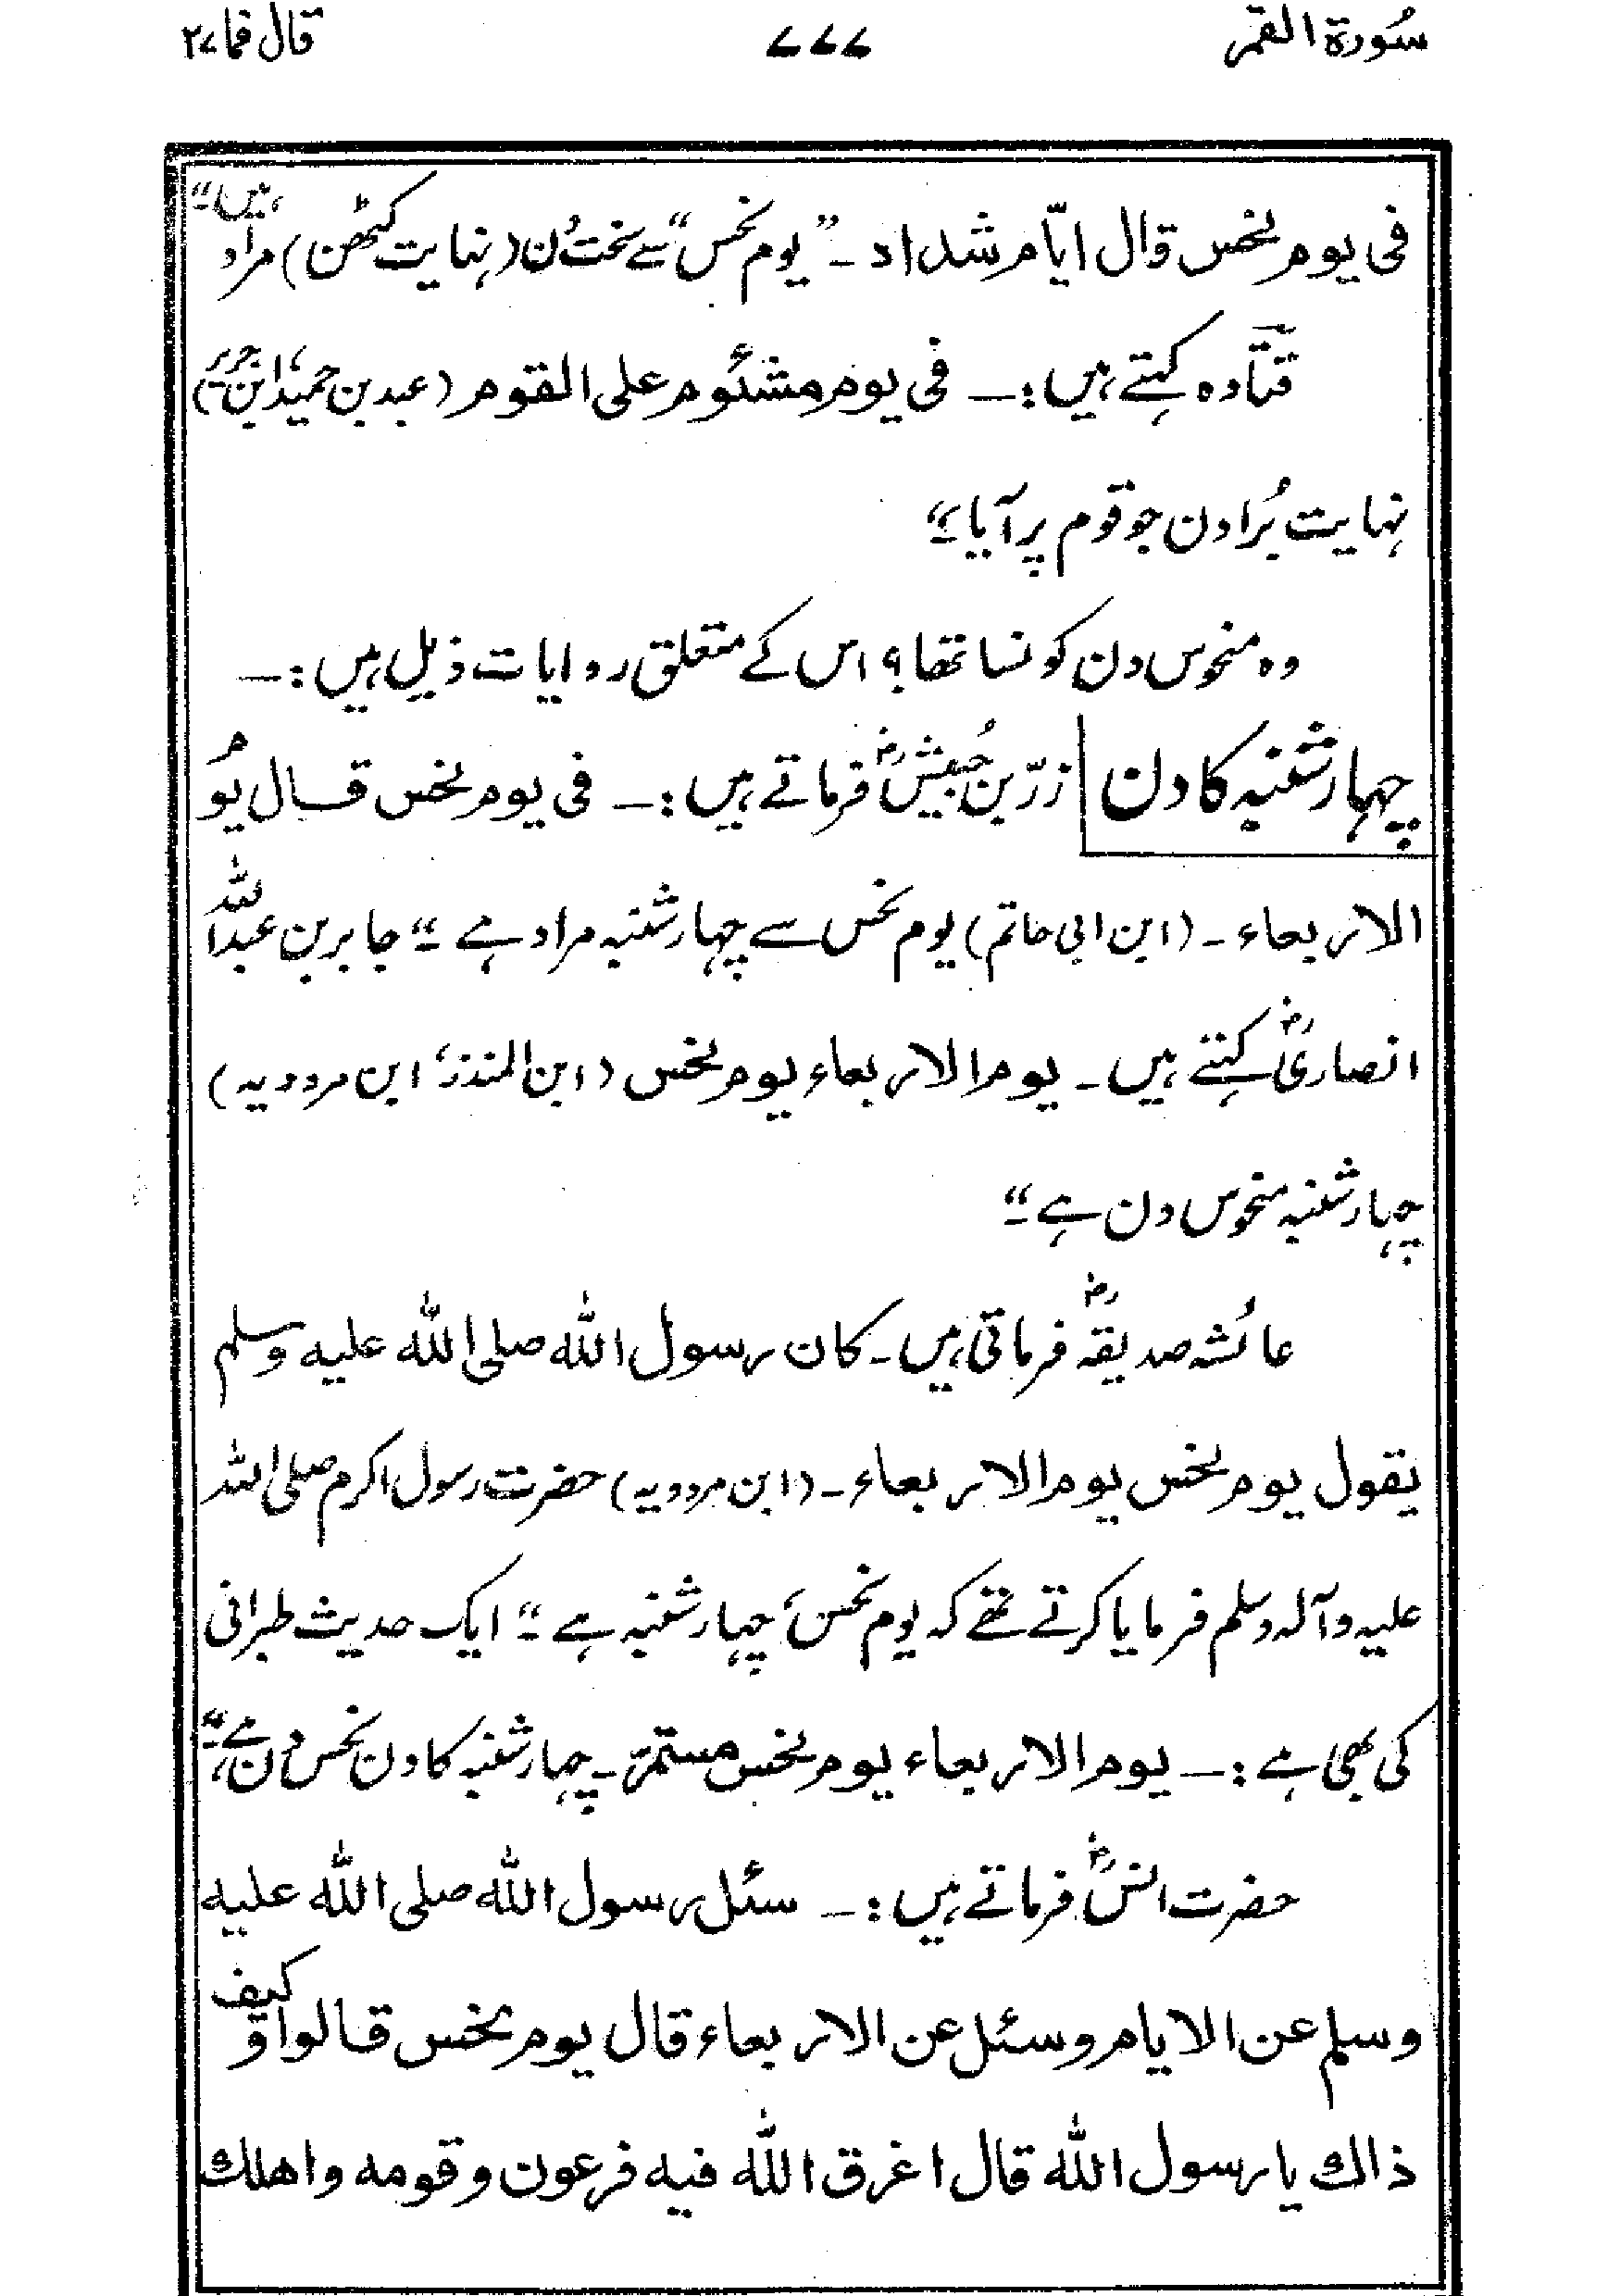 سُورة القمر ۷۷۷ قال فما ۲۷
فی یوم نحس قال ایّام شداد۔ ”یوم نحس“ سے سخت دن (نہایت کٹھن) مراد ہیں۔“
قتادہ کہتے ہیں:۔ فی یوم مشئوم علی القوم (عبد بن حمید، ابن جریر)
نہایت بُرا دن جو قوم پر آیا۔“
وہ منحوس دن کونسا تھا؟ اس کے متعلق روایات ذیل ہیں:۔
چہار شنبہ کا دن زرّ بن حُبیش رض فرماتے ہیں:۔ فی یوم نحس قال یُوم
الاربعاء۔ (ابن ابی حاتم) یوم نحس سے چہار شنبہ مراد ہے۔“ جابر بن عبداللہ
انصاری رض کہتے ہیں۔ یوم الاربعاء یوم نحس (ابن المنذر، ابن مردویہ)
چہار شنبہ منحوس دن ہے۔“
عائشہ صدیقہ رض فرماتی ہیں۔ کان رسول اللہ صلی اللہ علیہ وسلم
یقول یوم نحس یوم الاربعاء۔ (ابن مردویہ) حضرت رسول اکرم صلی اللہ
علیہ وآلہ وسلم فرمایا کرتے تھے کہ یوم نحس، چہار شنبہ ہے۔“ ایک حدیث طبرانی
کی بھی ہے:۔ یوم الاربعاء یوم نحس مستمرّ۔ چہار شنبہ کا دن نحس دن ہے۔“
حضرت انس رض فرماتے ہیں:۔ سئل رسول اللہ صلی اللہ علیہ
وسلم عن الایام وسئل عن الاربعاء قال یوم نحس قالوا و کیف
ذالك یا رسول اللہ قال اغرق اللہ فیہ فرعون وقومہ واھلك